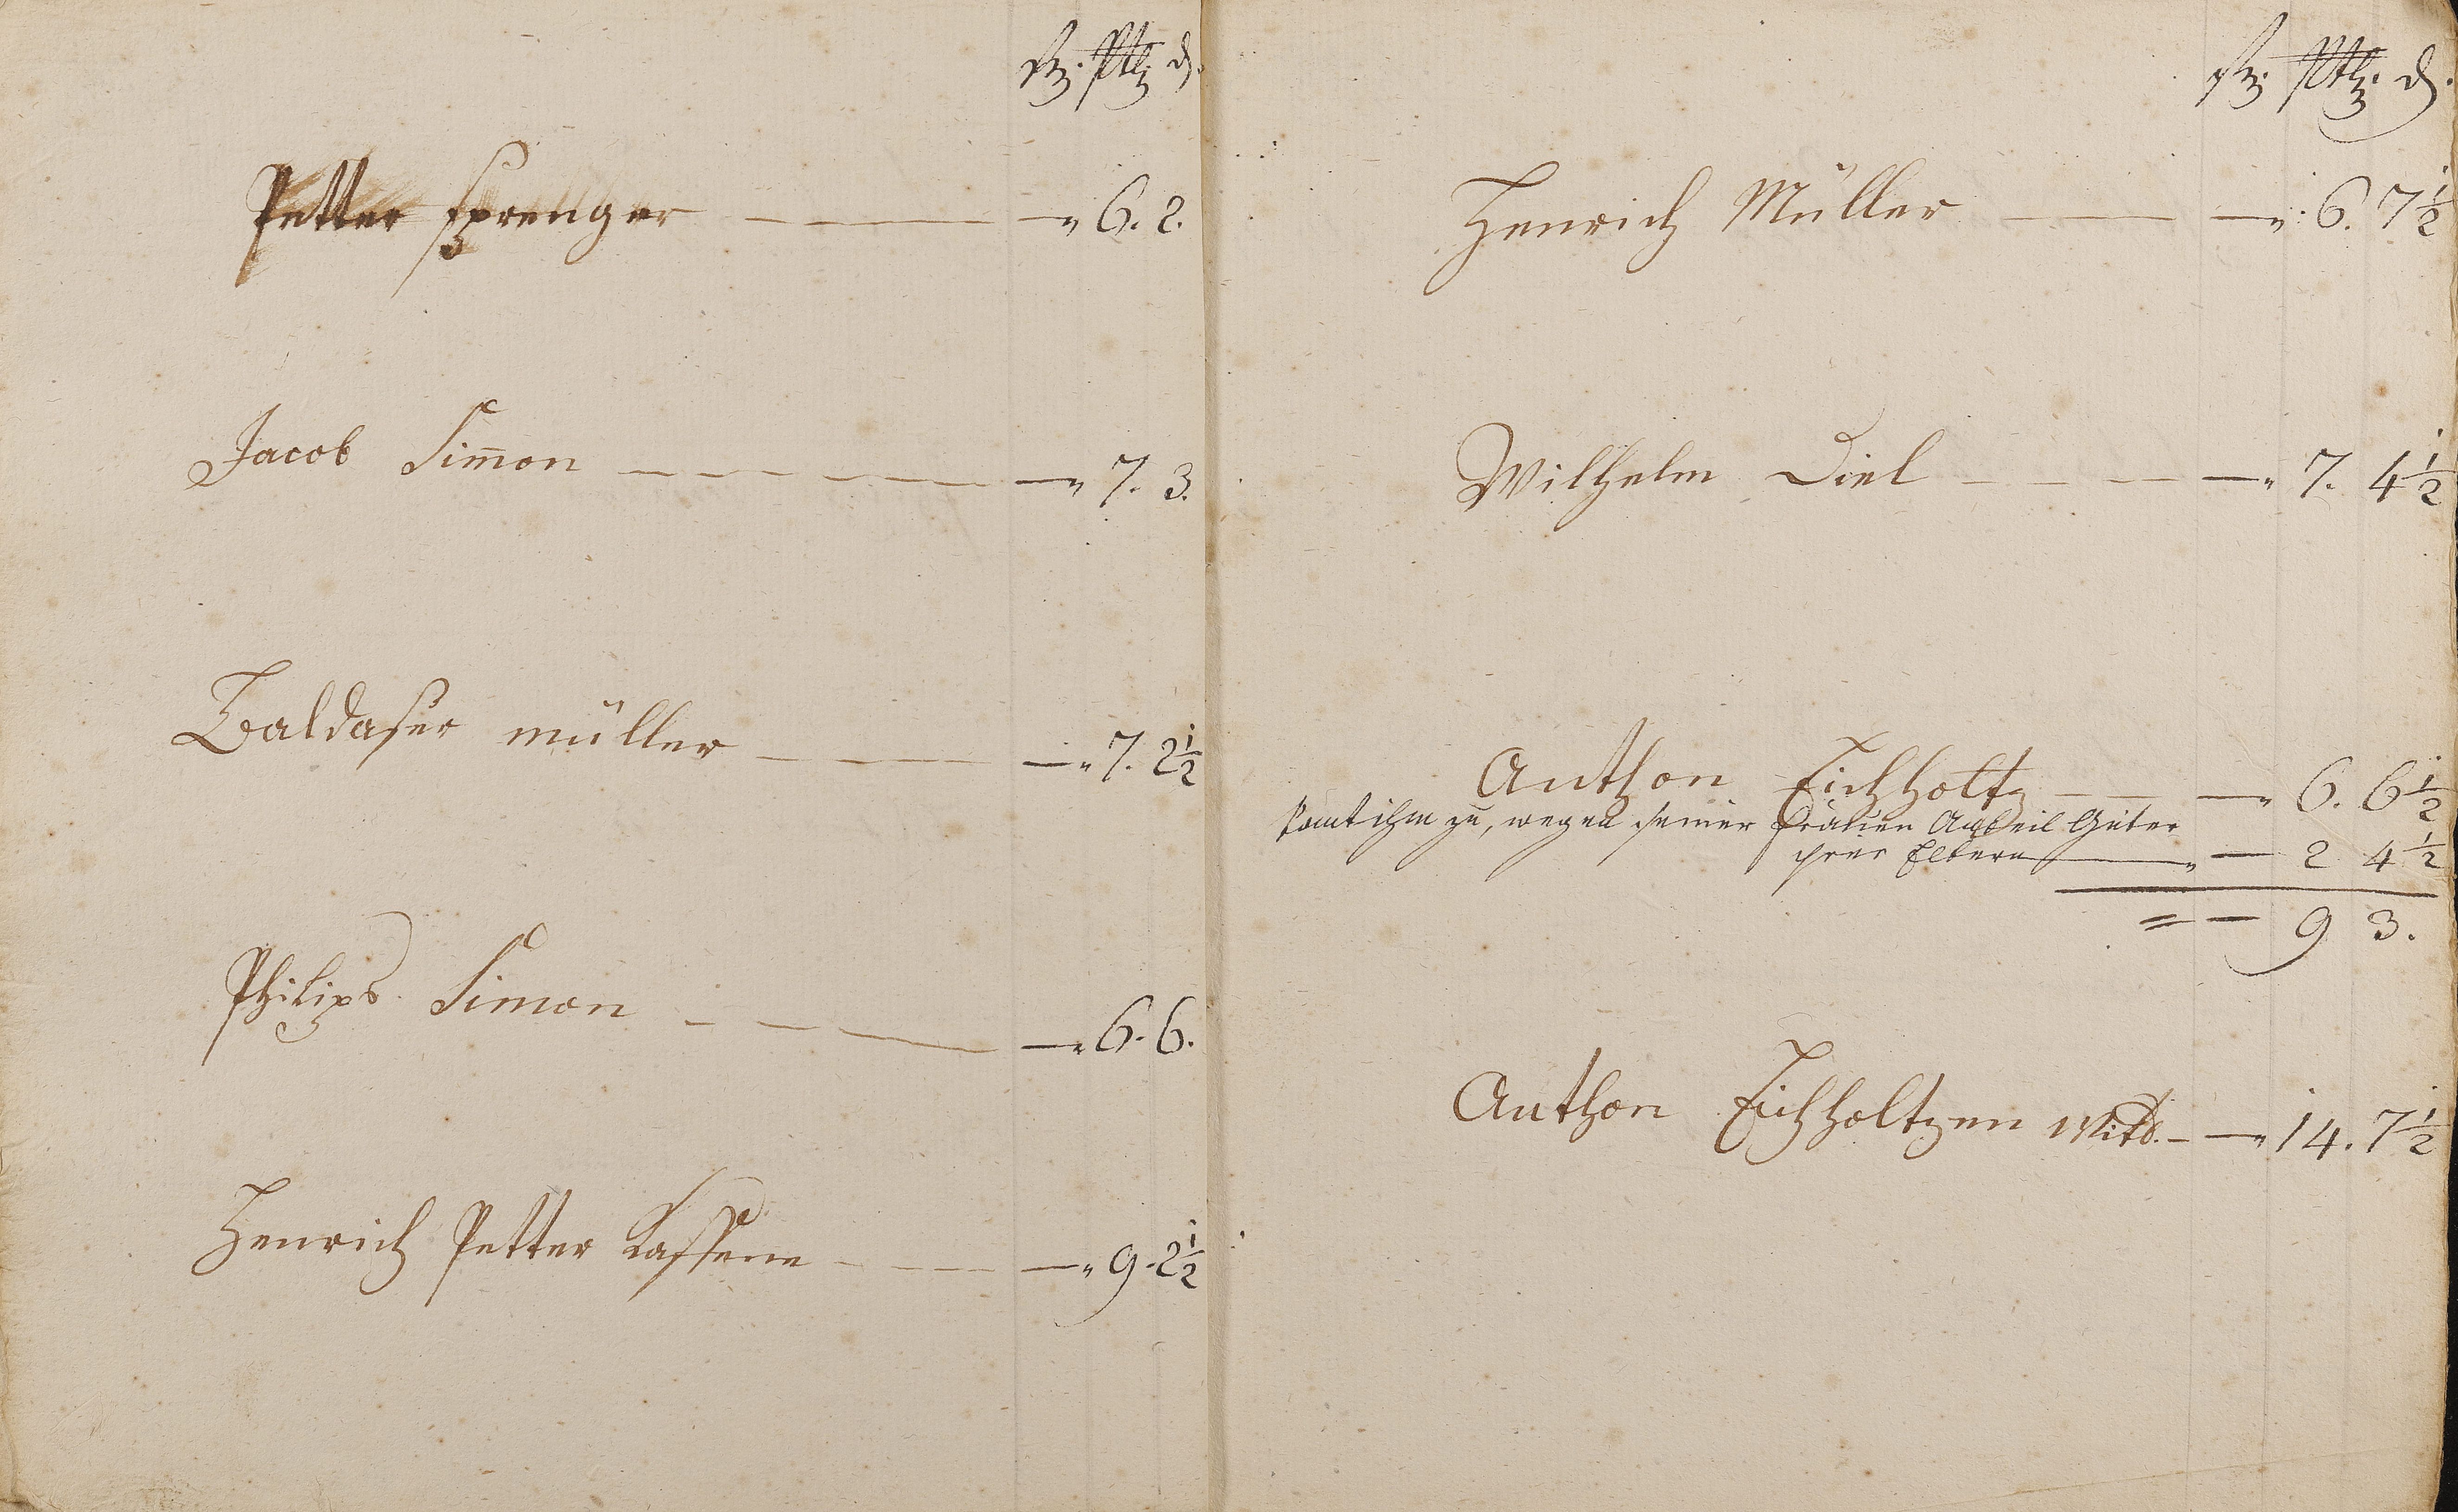 Petter Sprenger — — — „ 6. 2.
Jacob Sim̄on — — — „ 7. 3.
Baldaser müller — — — „ 7. 2½
Philips Simon — — — „ 6. 6.
Henrich Petter — — — „ 9. 2½
Henrich Müller — — — „ 6. 7½
Wilhelm Diel — — — „ 7. 4½
Anthon Eichholtz — — „ 6. 6½
komt ihm zu, wegen seiner frauen Antheil Güter
ihrer Eltern — „ — 2 4½
= — 9 3.
Anthon Eichholtzen Witb. — — „ 14. 7½